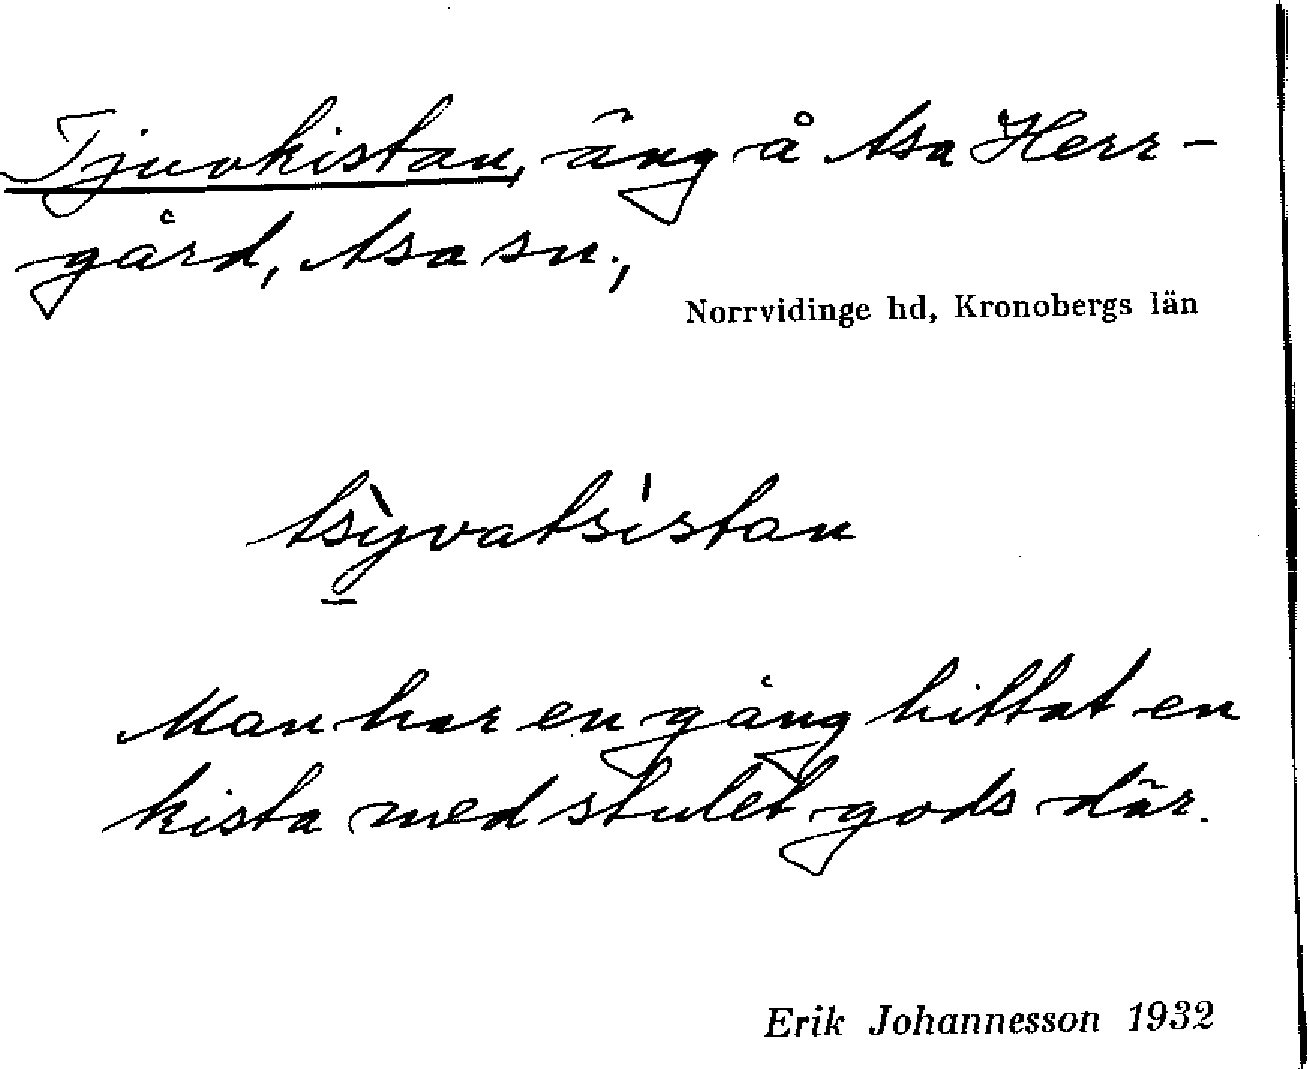 Tjuvkistan, äng å Asa Herr-
gård, Asa sn.,
Norrvidinge hd, Kronobergs län
tsỳvatsistan
Man har en gång hittat en
kista med stulet gods där.
Erik Johannesson 1932